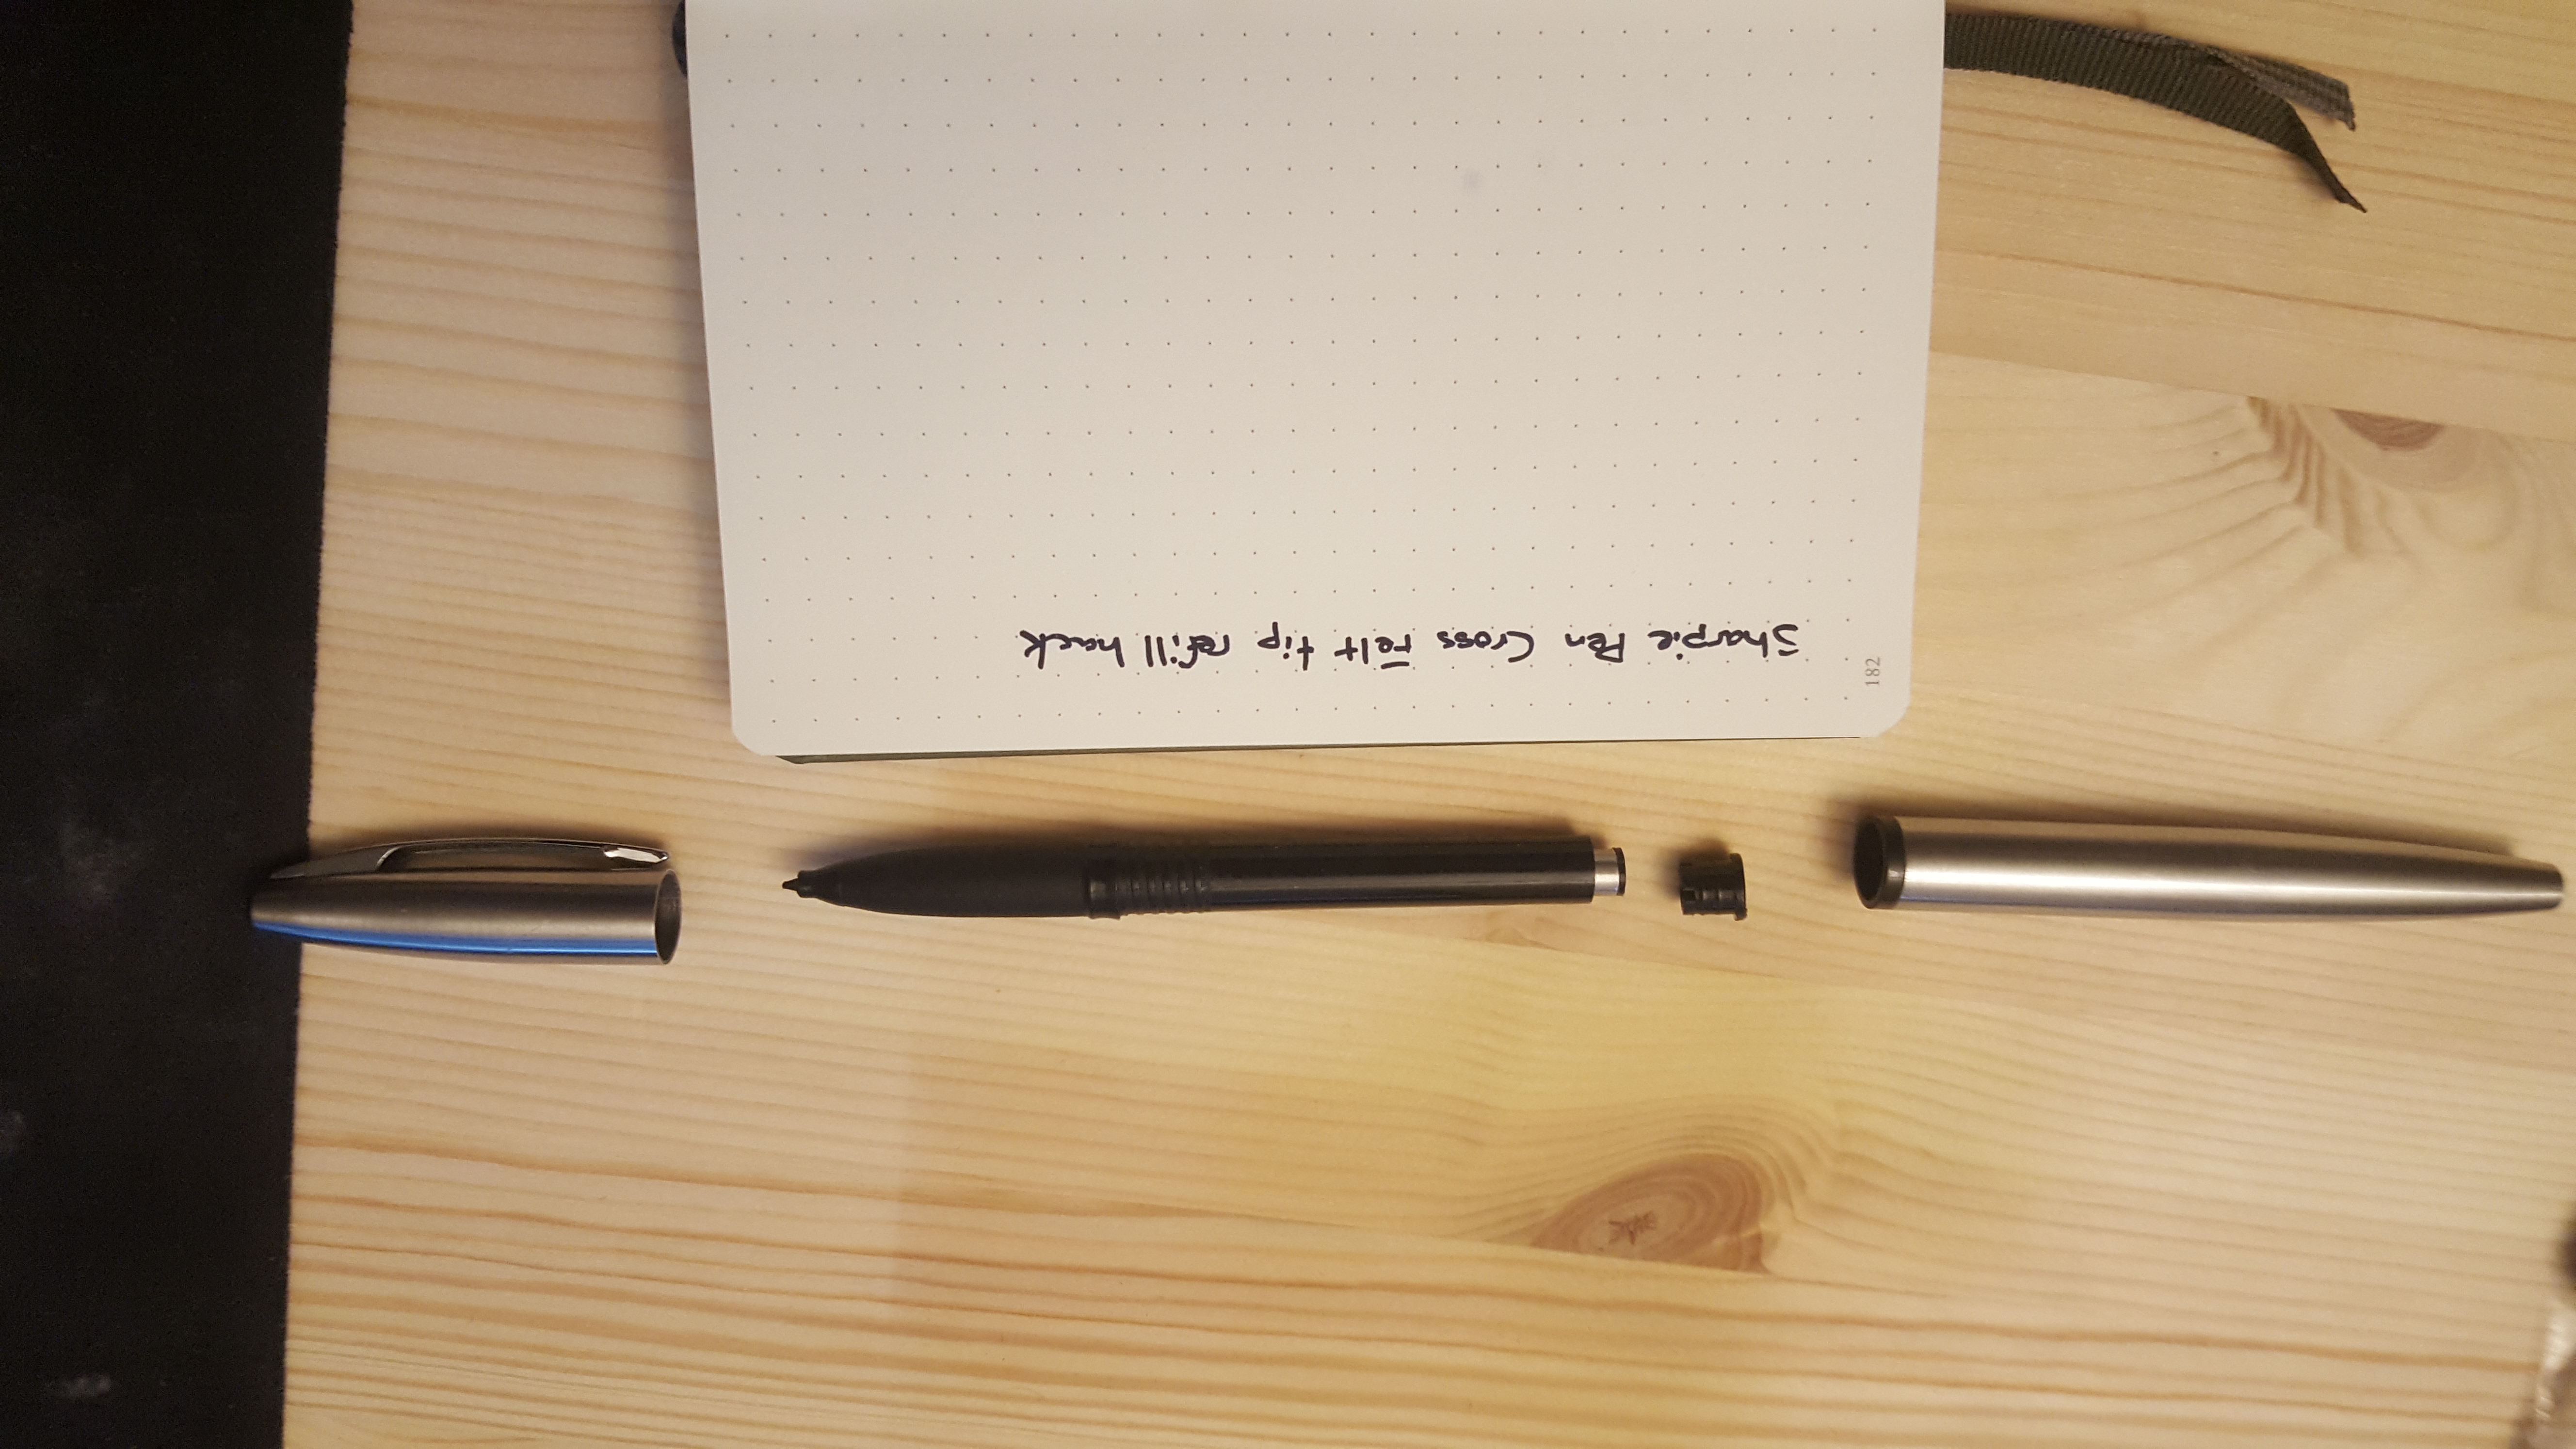 Sharpie Pen Cross Felt tip refill hack
182